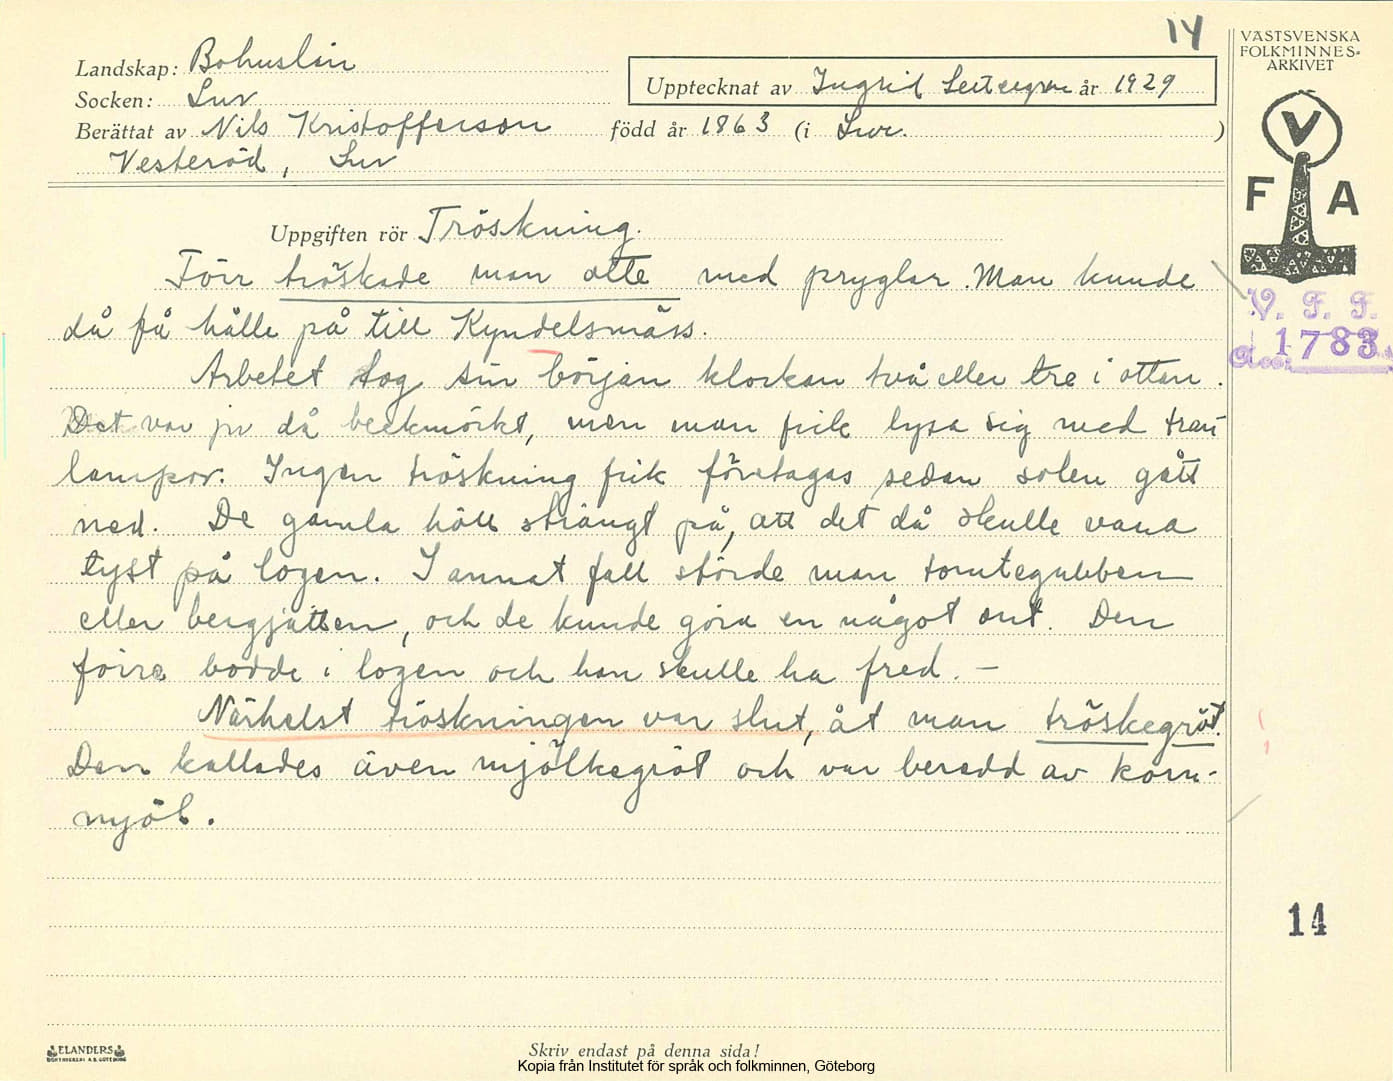 14
VÄSTSVENSKA
FOLKMINNES-
ARKIVET
Landskap: Bohuslän
Upptecknat av Ingrid år 1929
Socken:
Berättat av Nils Kristofferson född år 1863 (i )
Vesteröd,
V
F A
Uppgiften rör Tröskning.
Förr tröskade man alle med pryglar. Man kunde
då få hålle på till Kyndelsmäss.
V. F. F.
1783
Arbetet tog sin början klockan två eller tre i ottan.
Det var ju då beckmörkt, men man fick lysa sig med tran
lampor. Ingen tröskning fick företagas sedan solen gått
ned. De gamla höll strängt på, att det då skulle vara
tyst på logen. I annat fall störde man tomtegubben
eller bergjätten, och de kunde göra en något ont. Den
förre bodde i logen och han skulle ha fred. –
Närhelst tröskningen var slut, åt man tröskegröt.
Den kallades även mjölkegröt och var beredd av korn-
mjöl.
14
ELANDERS
BOKTRYCKERI A.B. GÖTEBORG
Skriv endast på denna sida!
Kopia från Institutet för språk och folkminnen, Göteborg